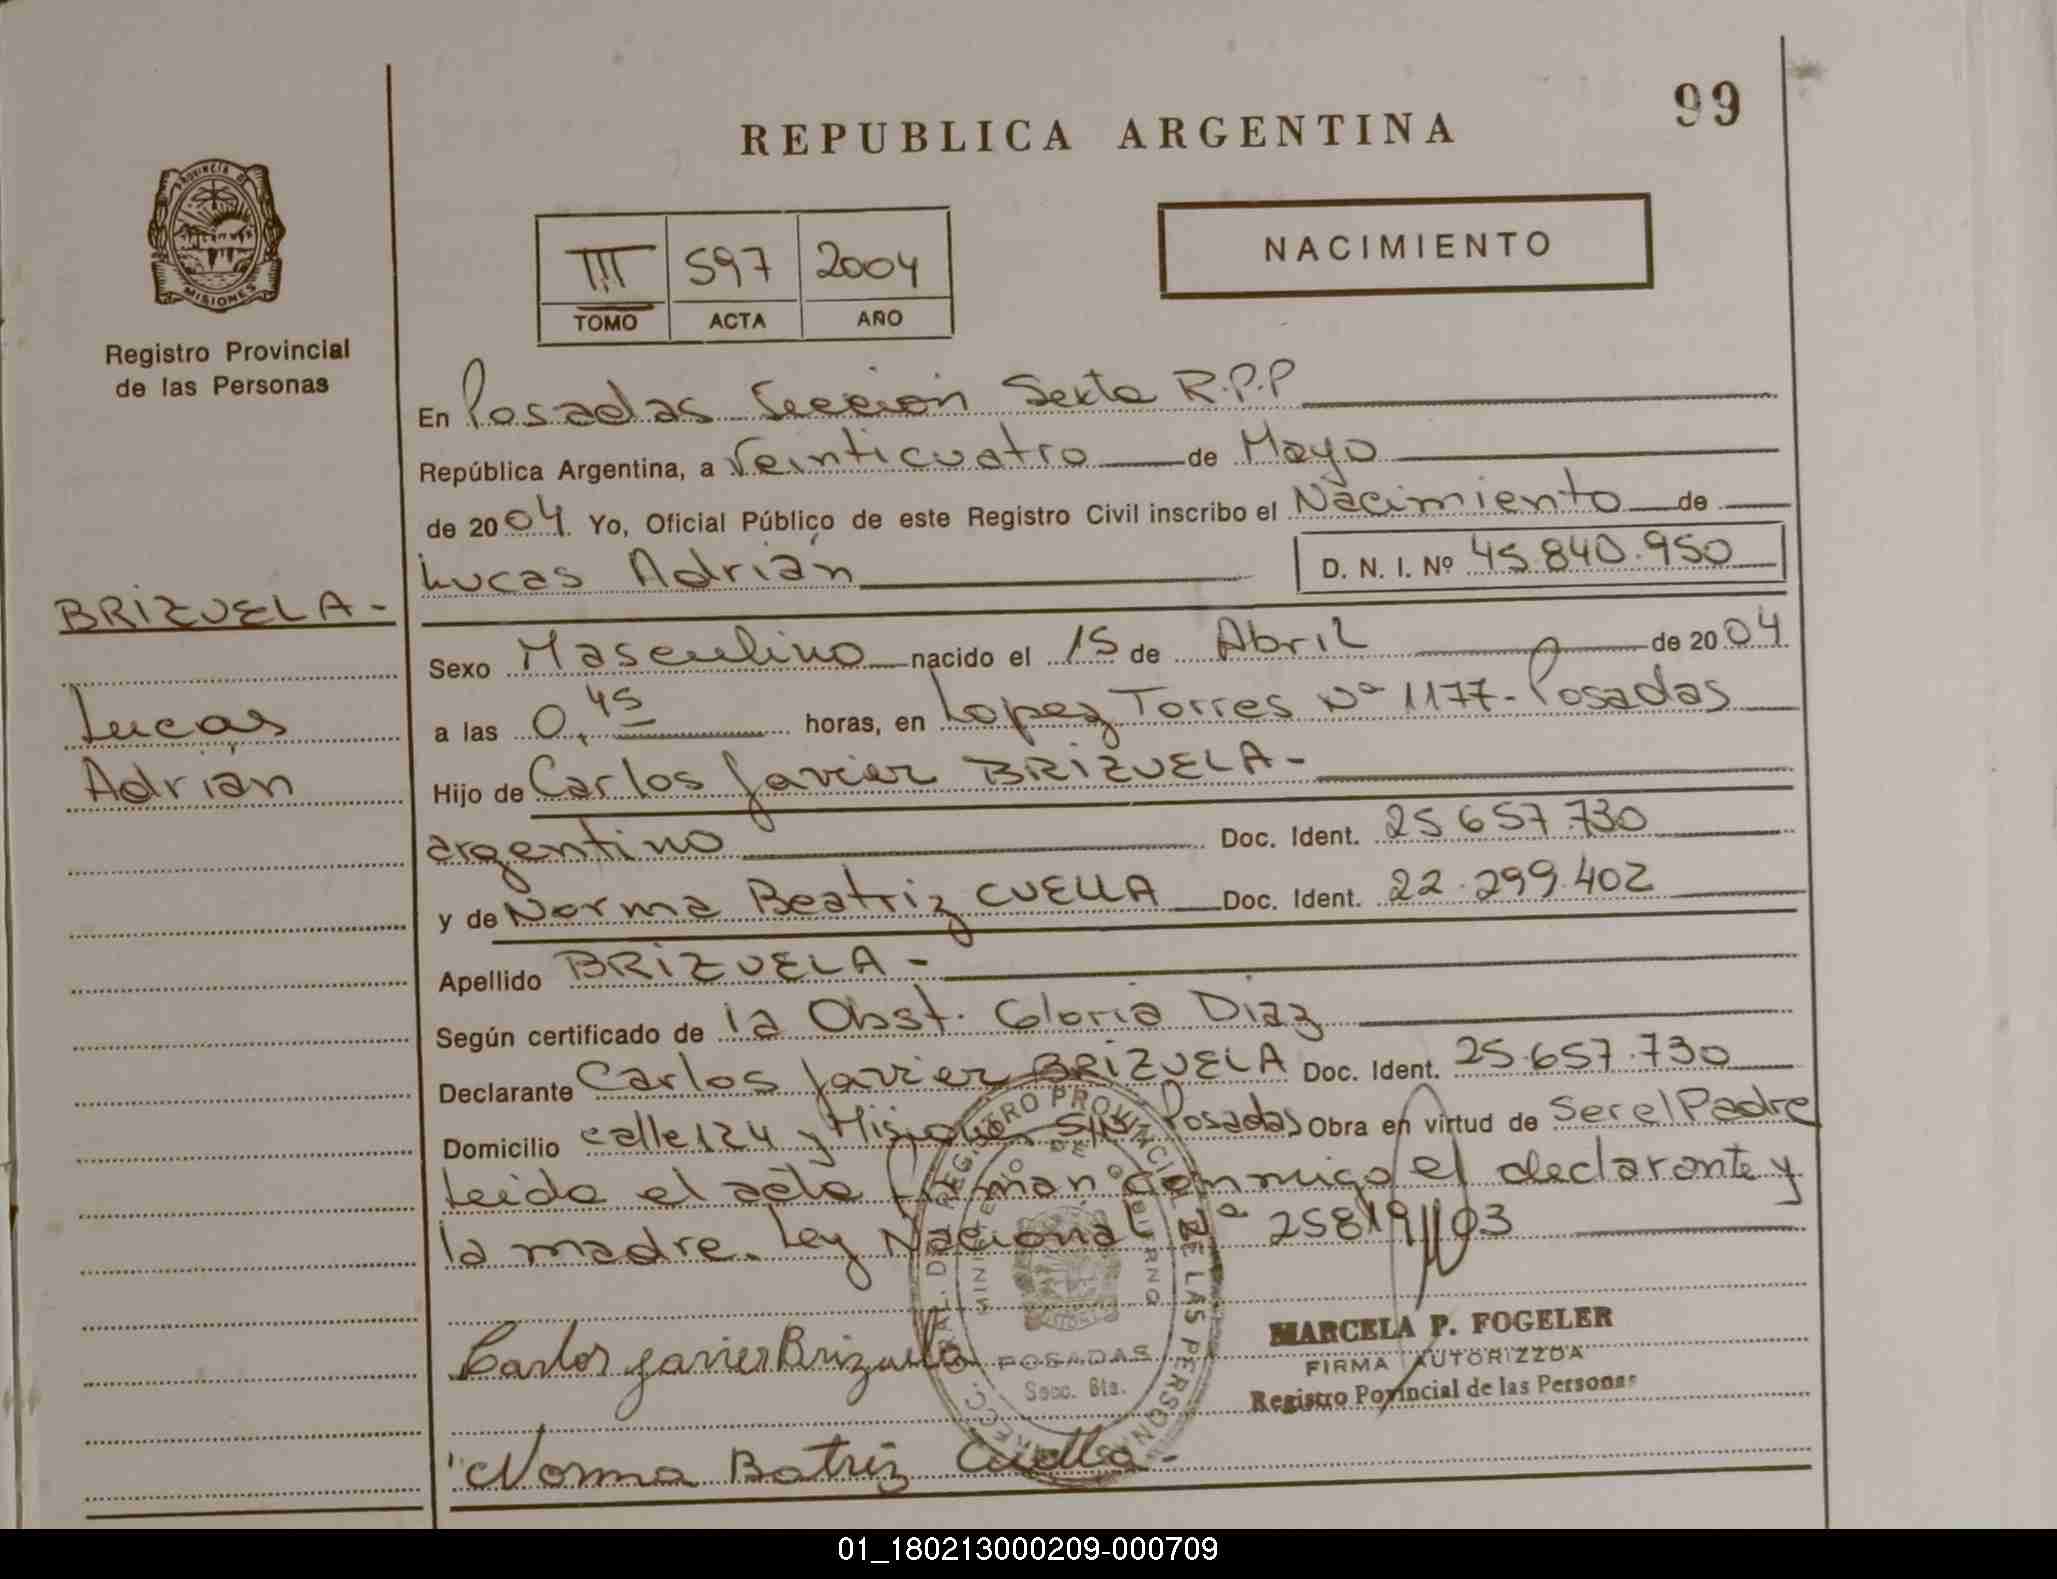 99
REPUBLICA ARGENTINA
PROVINCIA DE
MISIONES
Registro Provincial
de las Personas
III 597 2004
TOMO ACTA AÑO
NACIMIENTO
En Posadas Sección Sexta R.P.P
República Argentina, a Veinticuatro de Mayo
de 2004. Yo, Oficial Público de este Registro Civil inscribo el Nacimiento de
Lucas Adrián D. N. I. Nº 45.840.950
BRIZUELA-
Lucas
Adrián
Sexo Masculino nacido el 15 de Abril de 2004
a las 0,45 horas, en Lopez Torres Nº 1177-Posadas
Hijo de Carlos Javier BRIZUELA-
argentino Doc. Ident. 25.657.730
y de Norma Beatriz CUELLA Doc. Ident. 22.299.402
Apellido BRIZUELA-
Según certificado de la Obst. Gloria Diaz
Declarante Carlos Javier BRIZUELA Doc. Ident. 25.657.730
Domicilio calle 124 y Misiones S/N Posadas Obra en virtud de Ser el Padre
Leido el acta firman conmigo el declarante y
la madre. Ley Nacional Nº 25819/03
MARCELA P. FOGELER
FIRMA AUTORIZZDA
Registro Povincial de las Personas
Carlos Javier Brizuela
POSADAS
Secc. 6ta.
Norma Batriz Cuella-
01_180213000209-000709